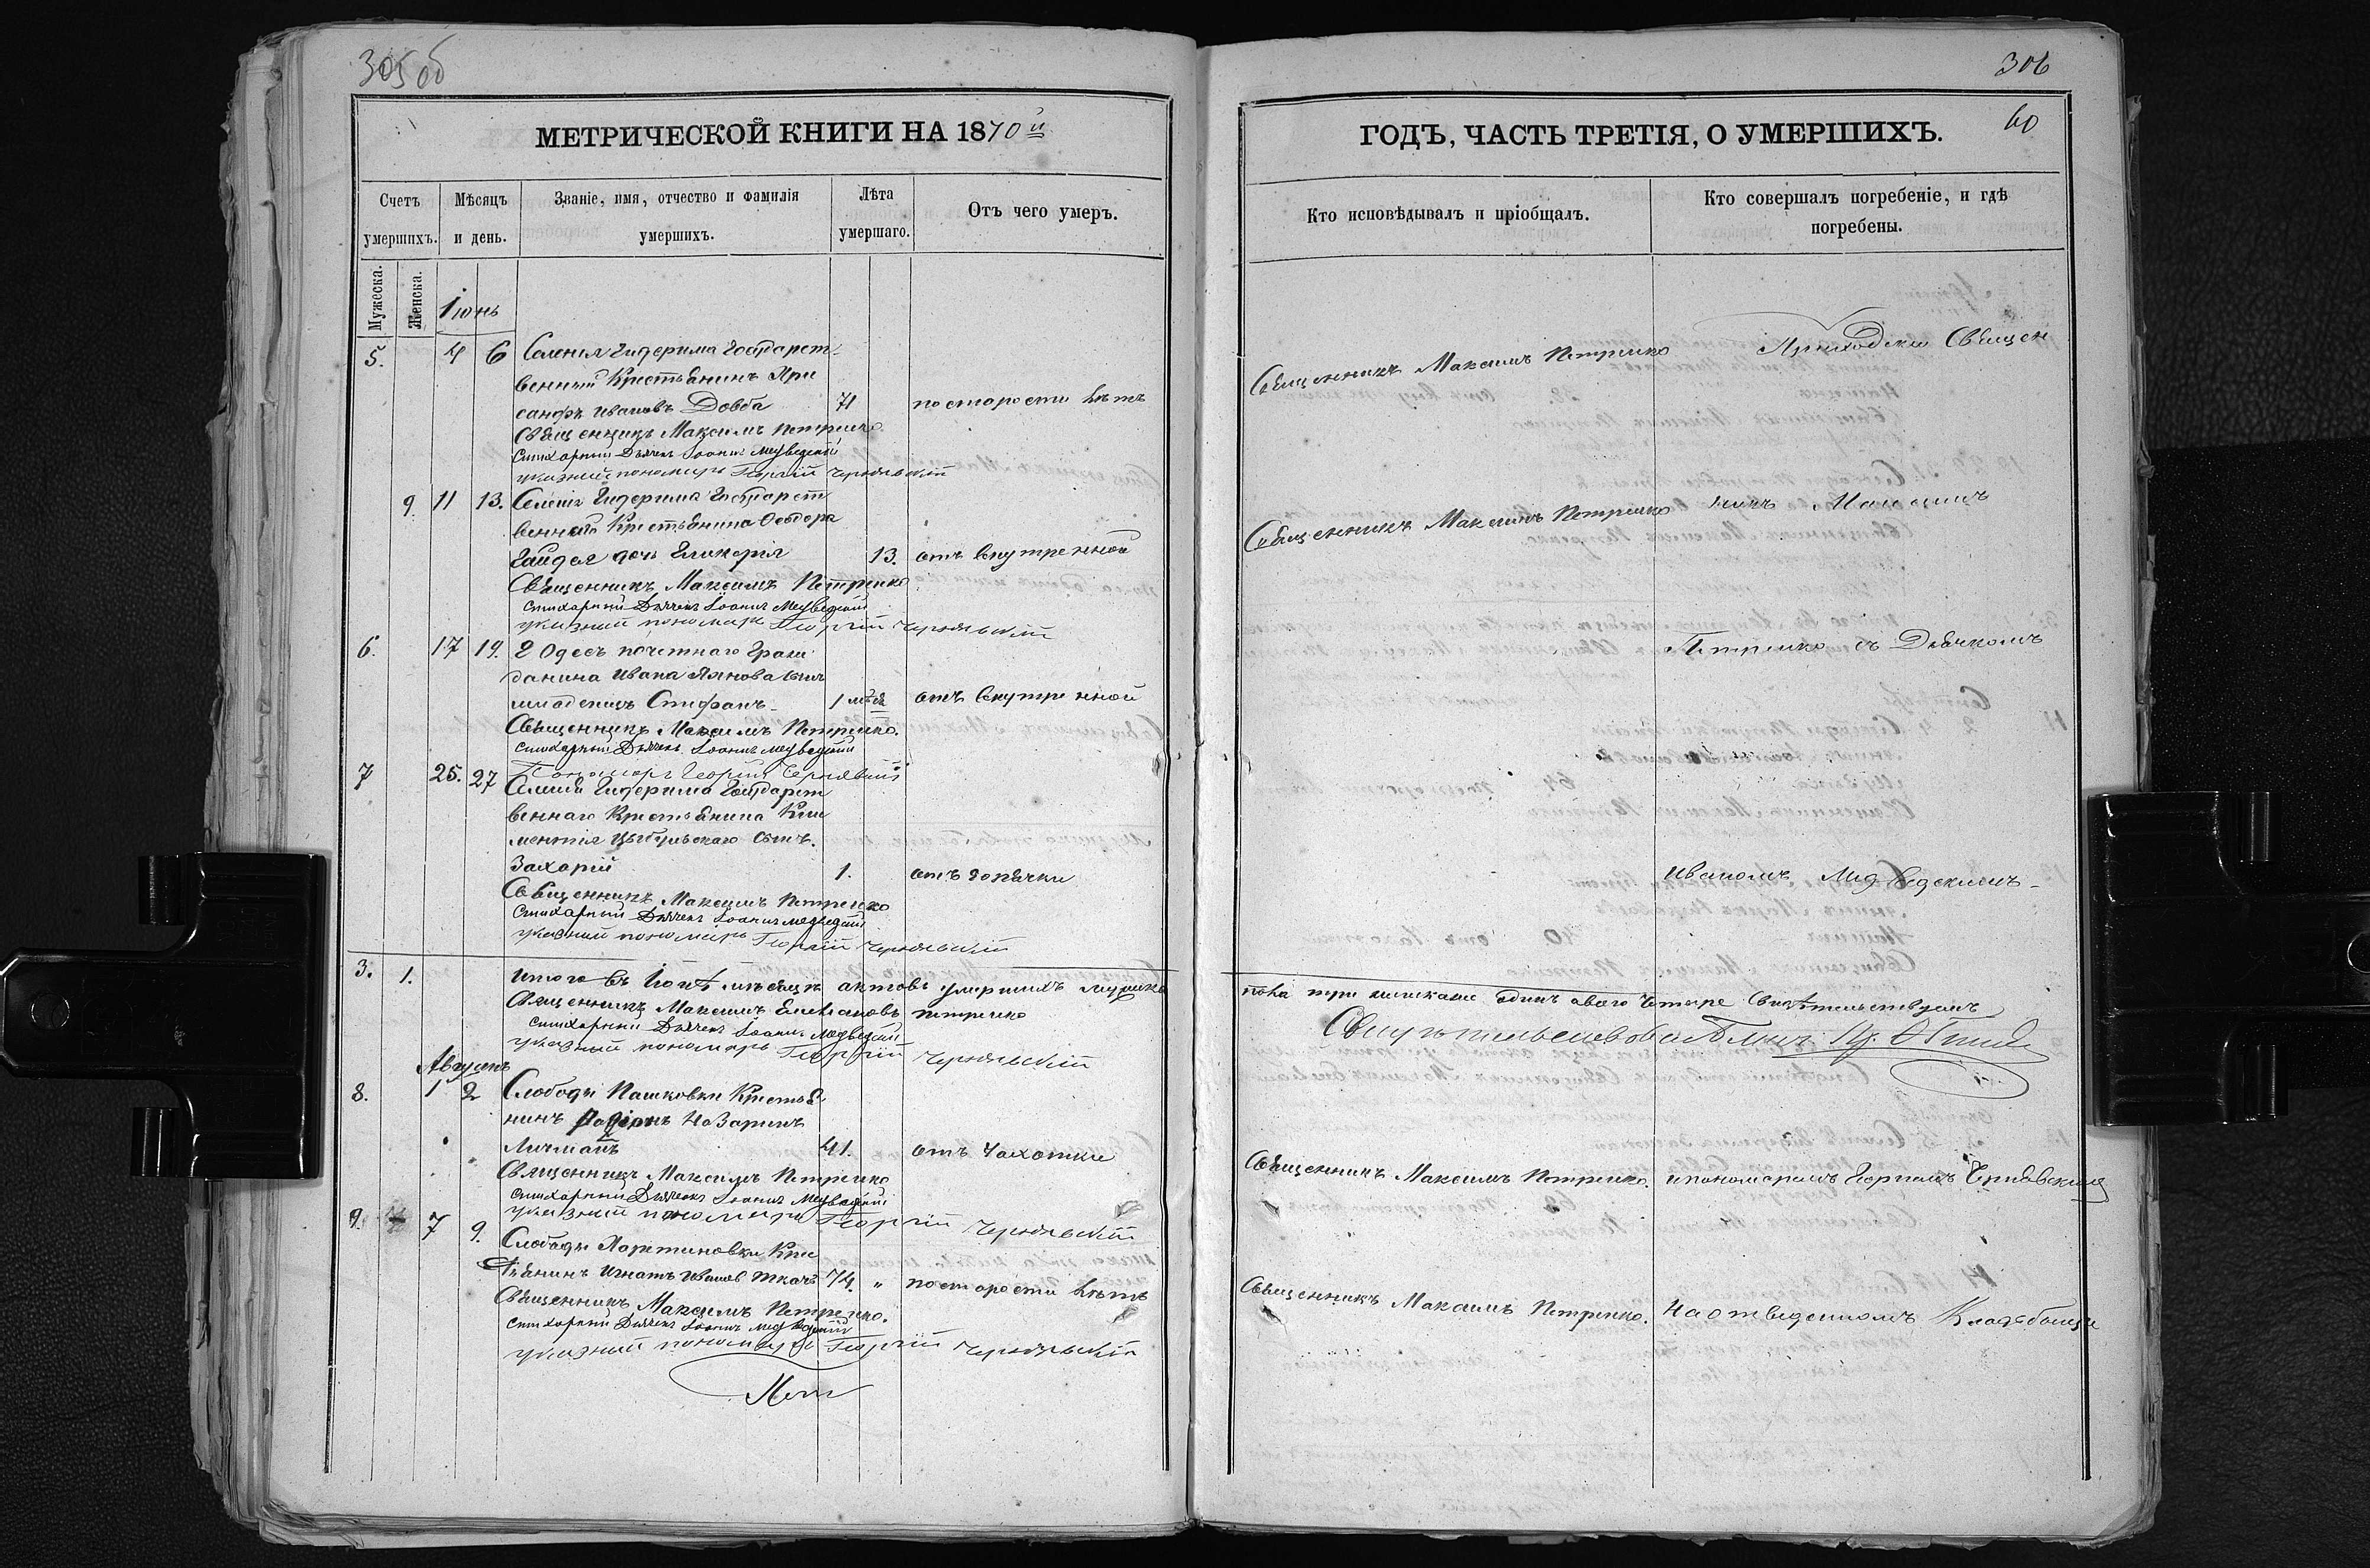 305 об
МЕТРИЧЕСКОЙ КНИГИ НА 1870й
Счетъ умершихъ.
Мужеска.
Женска.
Мѣсяцъ и день.
Званіе, имя, отчество и фамилія умершихъ.
Лѣта умершаго.
Отъ чего умеръ.
Іюнь
5. 4 6 Селенія Гидерима Государст-
венный Крестьянинъ
Ивановъ Довба 71 по старости лѣтъ
Священникъ Максимъ Петренко
Стихарный Дьячекъ Іоаннъ Медведскій
указный пономарь Георгій Чернявскій
9. 11 13. Селенія Гидерима Государст
веннаго Крестьянина Ѳеодора
Гайдея дочь Гликерія 13. отъ внутренной
Священникъ Максимъ Петренко
Стихарный Дьячекъ Іоаннъ Медведскій
указный пономарь Георгій Чернявскій
6. 17 19. Г Одес почетнаго Граж
данина Ивана сынъ
младенецъ Стефанъ 1 мѣся отъ внутренной
Священникъ Максимъ Петренко.
Стихарный Дьячекъ Іоаннъ Медведскій
Пономарь Георгій Чернявскій
7 25. 27 Селенія Гидерима Государст
веннаго Крестьянина Кли
ментія Цыбульскаго сынъ.
Захарій 1. отъ горячки
Священникъ Максимъ Петренко
Стихарный Дьячекъ Іоаннъ Медведскій
указный пономарь Георгій Чернявскій
3. 1. Итого въ Іюнѣ мѣсяцѣ актовъ умершихъ мужеска
Священникъ Максимъ Петренко
Стихарный Дьячекъ Іоаннъ Медведскій
указный пономарь Георгій Чернявскій
Августъ
8. 1 2 Слободы Пашковки Крестья
нинъ Родіонъ Назаринъ
Личманъ 41. отъ Чахотки
Священникъ Максимъ Петренко
Стихарный Дьячекъ Іоаннъ Медведскій
указный пономарь Георгій Чернявскій
9. 7 9. Слободы Мартиновки Кре
стьянинъ Игнатъ Ивановъ Ткачъ 74. " по старости лѣтъ
Священникъ Максимъ Петренко.
Стихарный Дьячекъ Іоаннъ Медведскій
указный пономарь Георгій Чернявскій
306
60
ГОДЪ, ЧАСТЬ ТРЕТІЯ, О УМЕРШИХЪ.
Кто исповѣдывалъ и пріобщалъ.
Кто совершалъ погребеніе, и гдѣ погребены.
Священникъ Максимъ Петренко Приходскій Священ
Священникъ Максимъ Петренко никъ Максимъ
Петренко съ Дьячкомъ
Иваномъ Медведскимъ
пола три женскаго одинъ обоего Четыре Свидѣтельствуемъ
Священникъ Максимъ Петренко. и пономаремъ Георгіемъ Чернявскимъ
Священникъ Максимъ Петренко. На отведенномъ Кладбыще